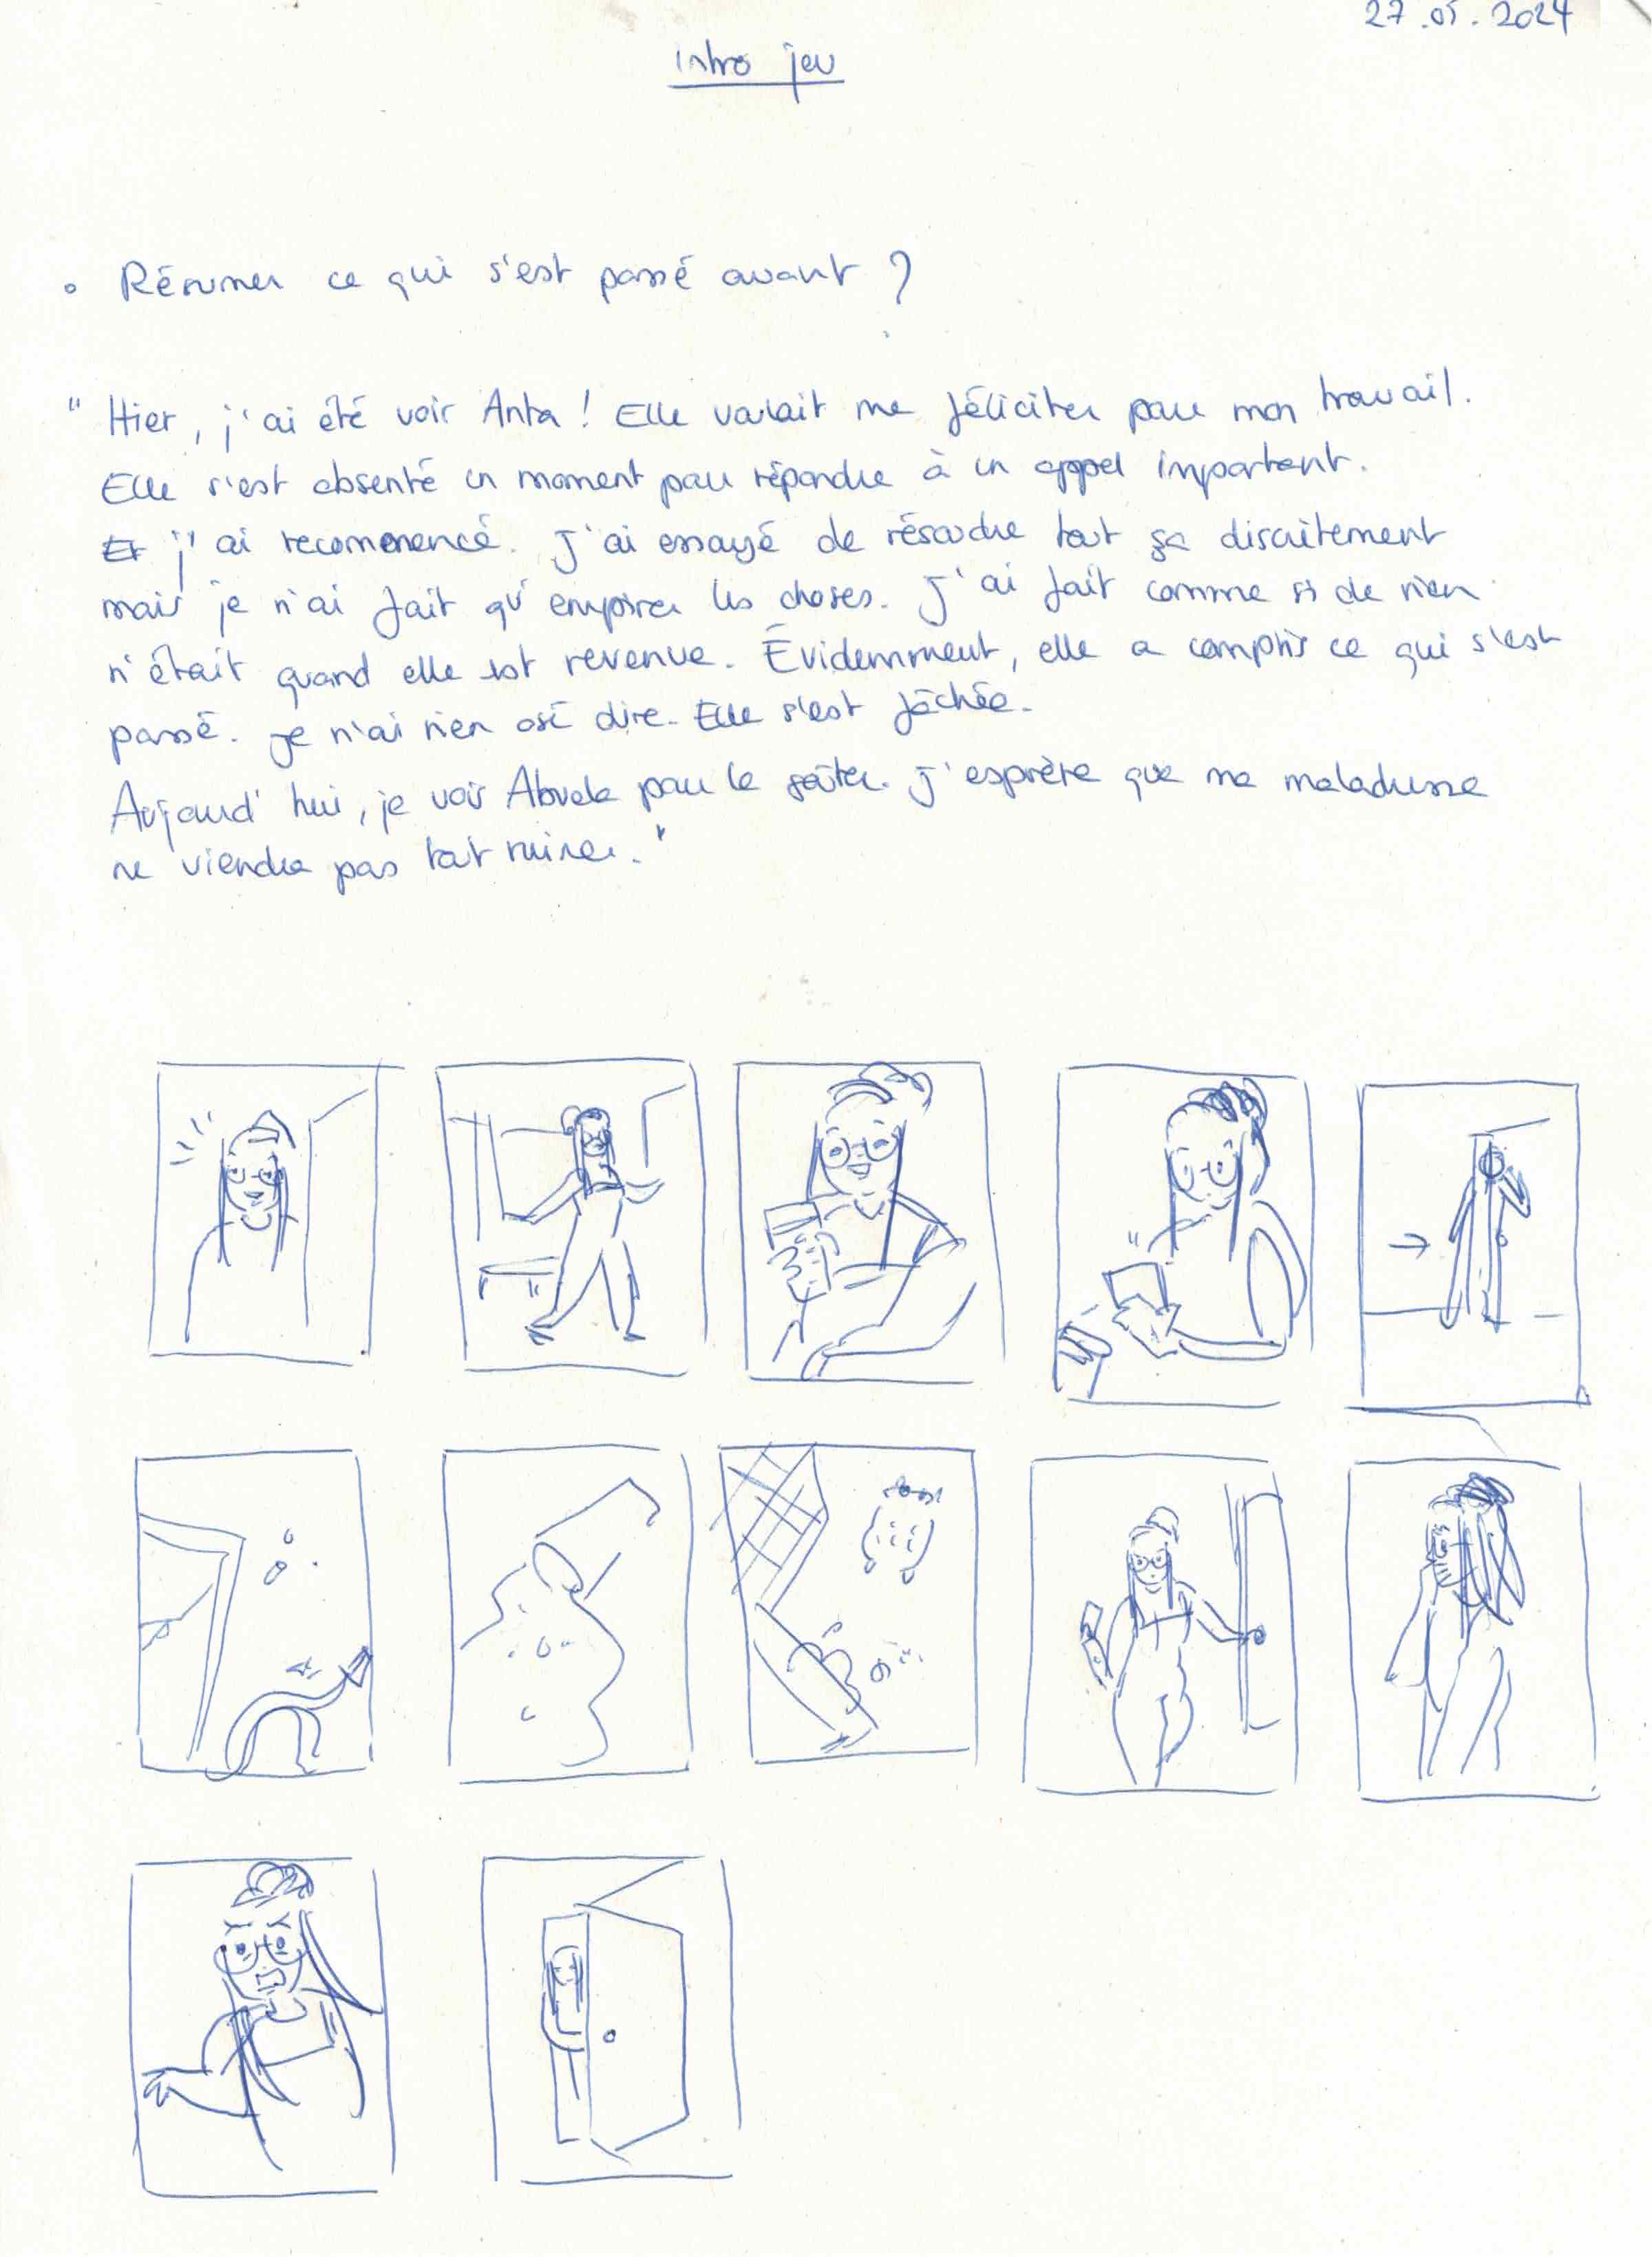 27.05.2024
Intro jeu
Résumer ce qui s'est passé avant ?
" Hier, j'ai été voir Anta ! Elle voulait me féliciter pour mon travail.
Elle s'est absenté un moment pour répondre à un appel important.
Et j'ai recommencé. J'ai essayé de résoudre tout ça discrètement
mais je n'ai fait qu'empirer les choses. J'ai fait comme si de rien
n'était quand elle est revenue. Évidemment, elle a compris ce qui s'est
passé. Je n'ai rien osé dire. Elle s'est fâchée.
Aujourd'hui, je vois Abuela pour le goûter. J'esprète que ma maladresse
ne viendra pas tout ruiner. "